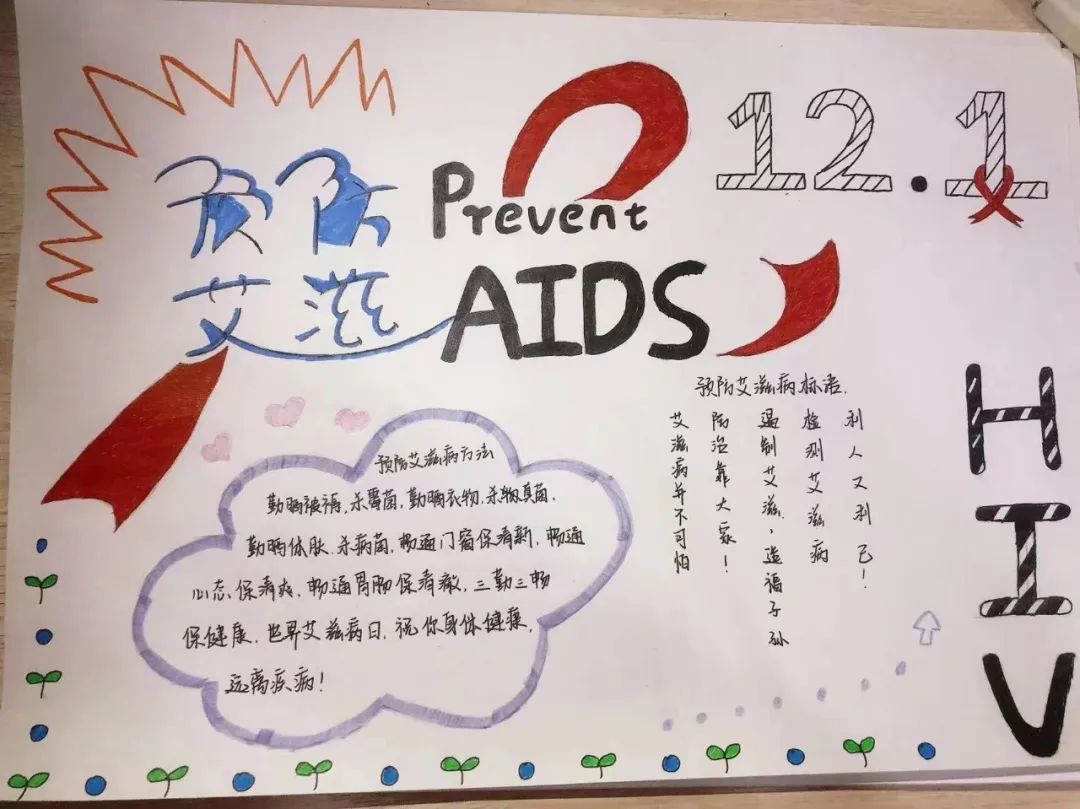 预防
艾滋
Prevent
AIDS
12.1
HIV
预防艾滋病方法
勤晒被褥,杀霉菌,勤晒衣物,杀真菌,
勤晒体肤,杀病菌,畅通门窗保清新,畅通
心态,保清爽,畅通胃肠保清澈,三勤三畅
保健康,世界艾滋病日,祝你身体健康,
远离疾病!
预防艾滋病标语.
艾滋病并不可怕
防治靠大家!
遏制艾滋,造福子孙
检测艾滋病
利人又利己!